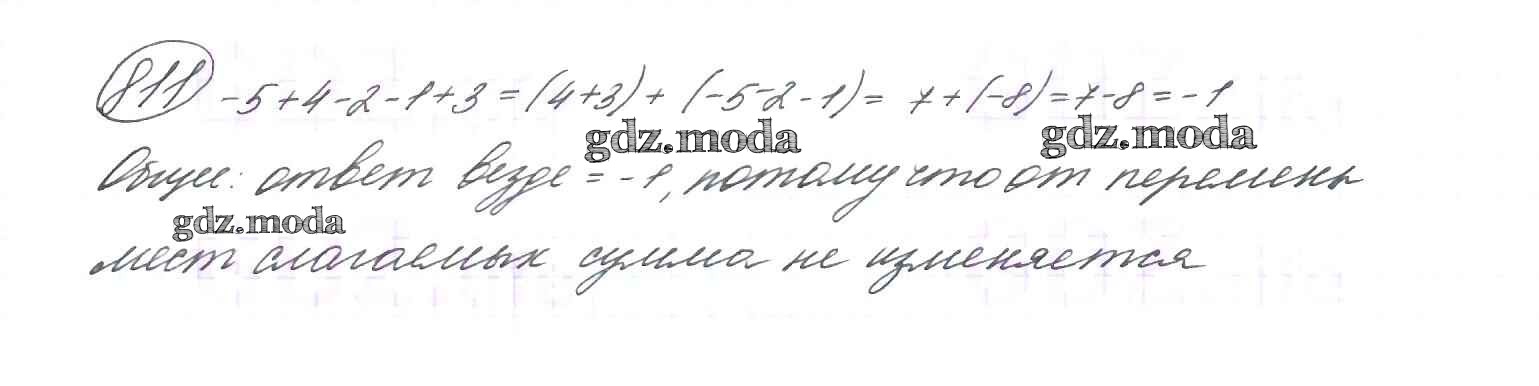 811 -5+4-2-1+3=(4+3)+(-5-2-1)= 7+(-8)=7-8=-1
gdz.moda gdz.moda
Общее: ответ везде = -1, потому что от перемены
gdz.moda
мест слагаемых сумма не изменяется